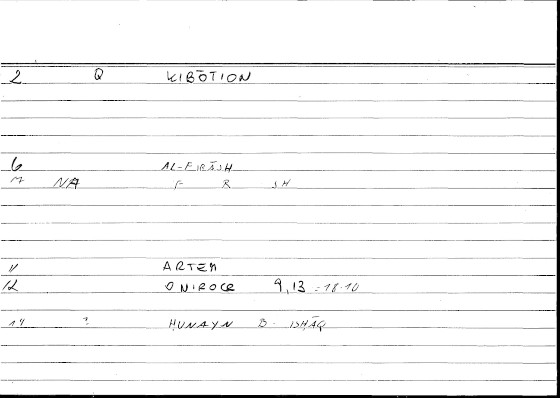 2 Q KIBŌTION
6 AL-FIRĀSH
7 NA F R SH
11 ARTEM
12 ONIROCR 9,13 = 18.10
14 ? HUNAYN B. ISHĀQ